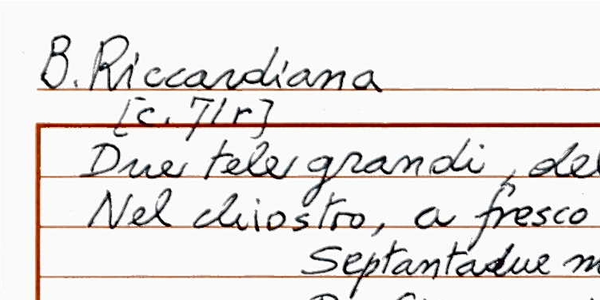 B. Riccardiana
[c. 71r]
Due tele grandi, del
Nel chiostro, a fresco
Septantadue m